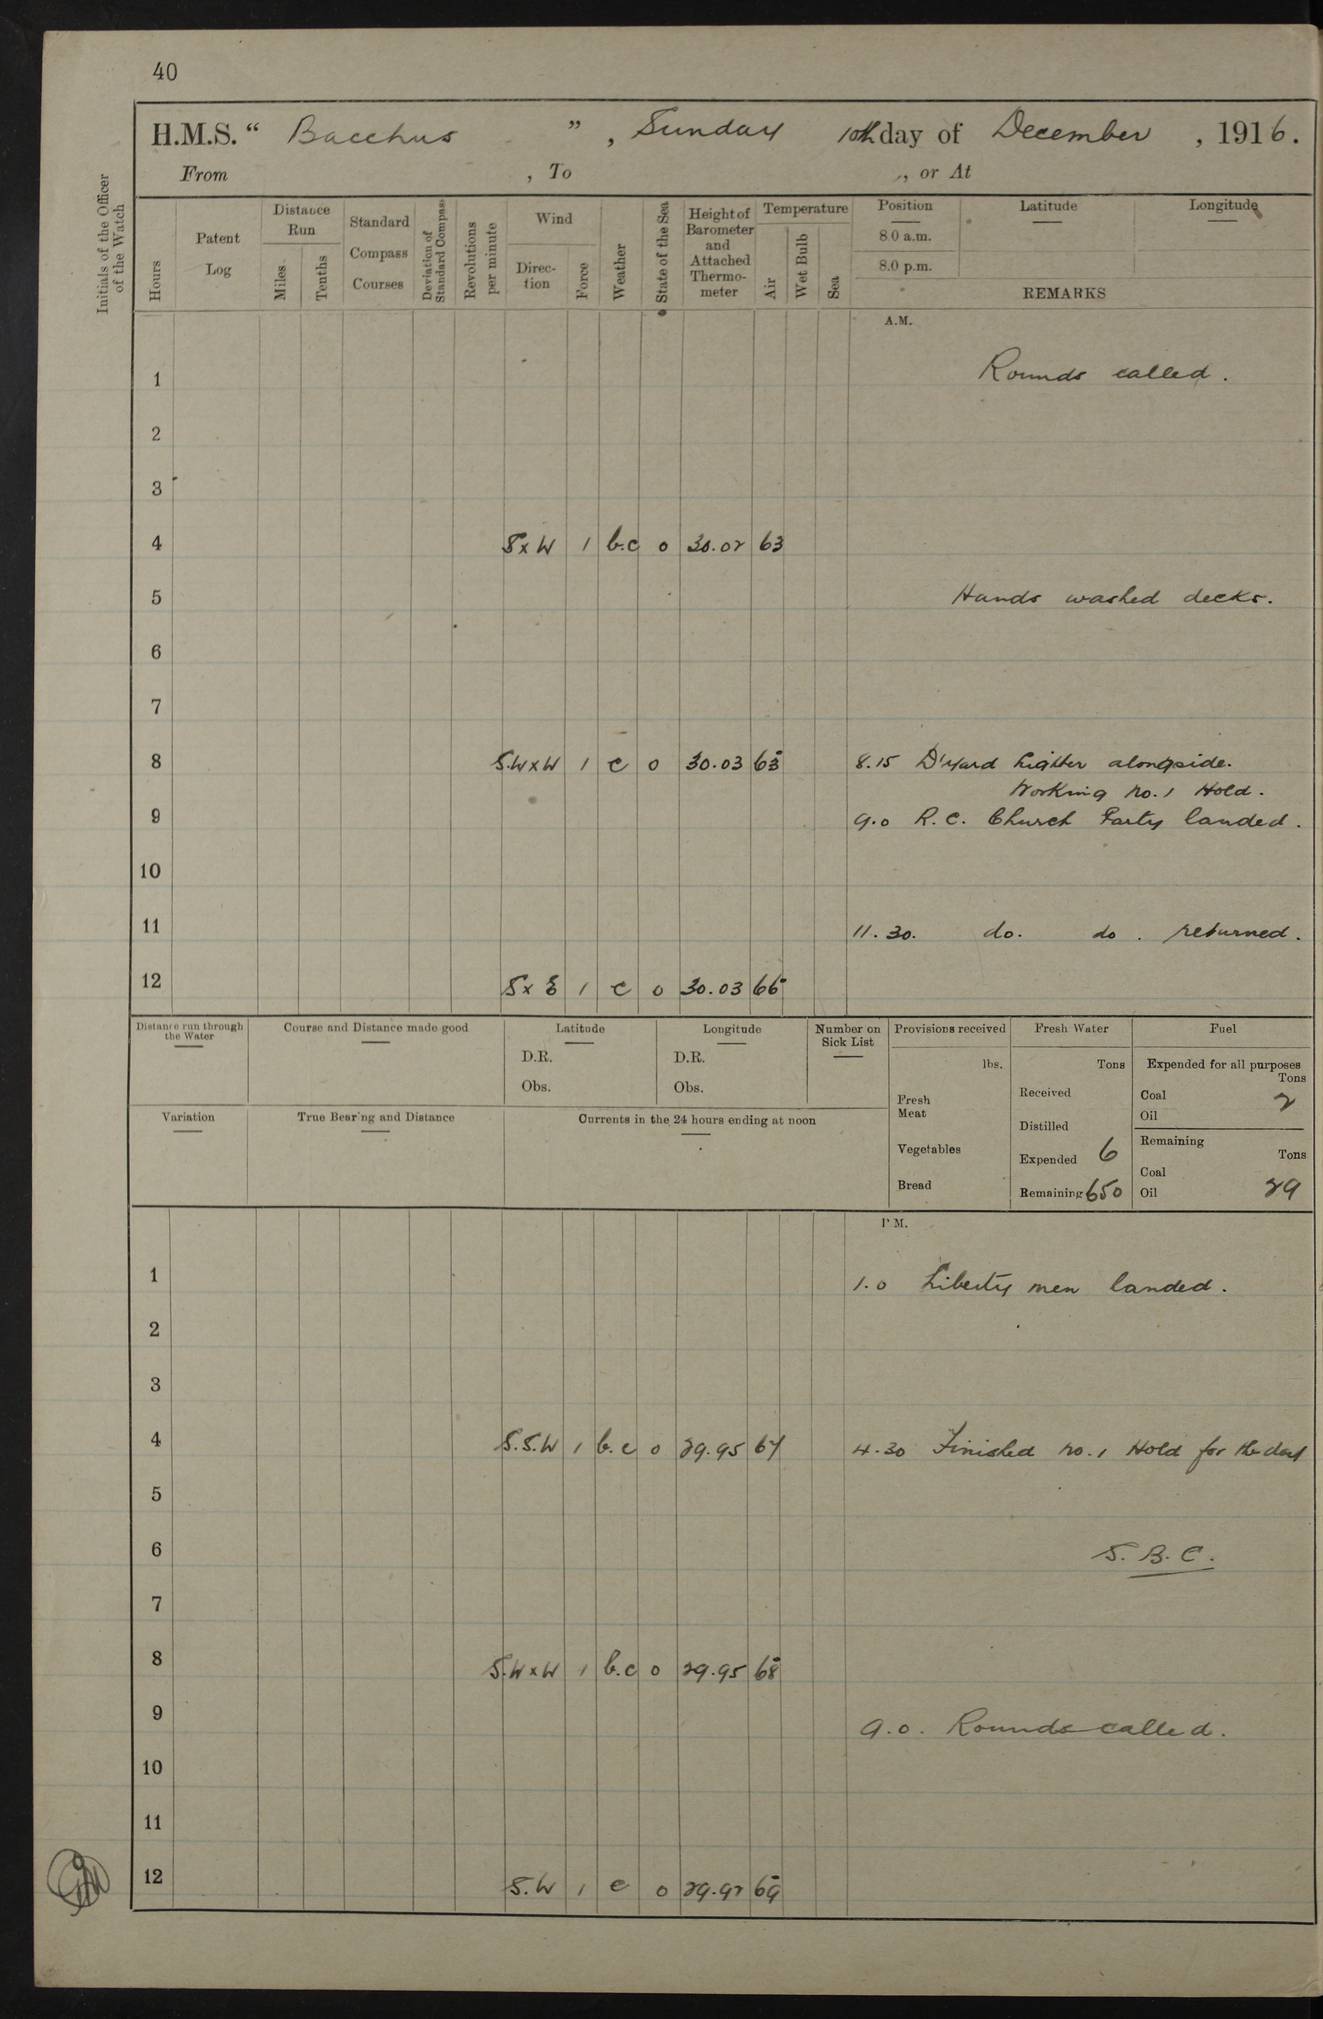 40
H.M.S. “ Bacchus ” , Sunday 10th day of December , 1916.
From , To , or At
Initials of the Officer of the Watch
Hours
Patent Log
Distance Run
Miles
Tenths
Standard Compass Courses
Deviation of Standard Compass
Revolutions per minute
Wind
Direction
Force
Weather
State of the Sea
Height of Barometer and Attached Thermometer
Temperature
Air
Wet Bulb
Sea
Position Latitude Longitude
8.0 a.m.
8.0 p.m.
REMARKS
A.M.
1 Rounds called.
2
3
4 S x W 1 b.c 0 30.02 63
5 Hands washed decks.
6
7
8 S.W x W 1 c 0 30.03 63 8.15 D'yard Lighter alongside.
Working No. 1 Hold.
9 9.0 R.C. Church Party landed.
10
11 11.30. do. do. returned.
12 S x E 1 c 0 30.03 66
Distance run through the Water
Course and Distance made good
Latitude
D.R.
Obs.
Longitude
D.R.
Obs.
Number on Sick List
Provisions received
lbs.
Fresh Meat
Vegetables
Bread
Fresh Water
Tons
Received
Distilled
Expended 6
Remaining 650
Fuel
Expended for all purposes
Tons
Coal 2
Oil
Remaining
Tons
Coal
Oil 29
Variation
True Bearing and Distance
Currents in the 24 hours ending at noon
P.M.
1 1.0 Liberty men landed.
2
3
4 S.S.W 1 b.c 0 29.95 67 4.30 Finished No. 1 Hold for the day
5
6 S.B.C.
7
8 S.W x W 1 b.c 0 29.95 68
9 9.0. Rounds called.
10
11
12 S.W 1 c 0 29.92 69